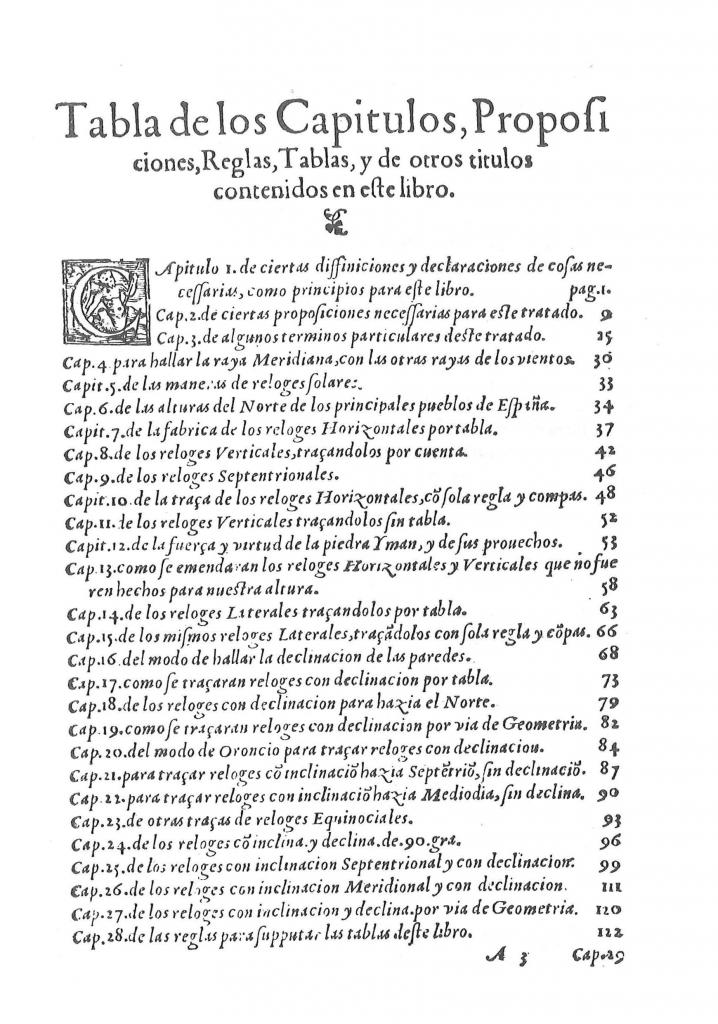 Tabla de los Capitulos, Proposi
ciones, Reglas, Tablas, y de otros titulos
contenidos en este libro.
CApitulo 1. de ciertas diffiniciones y declaraciones de cosas ne-
cessarias, como principios para este libro. pag.1.
Cap.2. de ciertas proposiciones necessarias para este tratado. 9
Cap.3. de algunos terminos particulares deste tratado. 25
Cap.4 para hallar la raya Meridiana, con las otras rayas de los vientos. 30
Capit.5. de las maneras de reloges solares. 33
Cap.6. de las alturas del Norte de los principales pueblos de Espña. 34
Capit.7. de la fabrica de los reloges Horizontales por tabla. 37
Cap.8. de los reloges Verticales, traçandolos por cuenta. 42
Cap.9. de los reloges Septentrionales. 46
Capit.10 de la traça de los reloges Horizontales, cõ sola regla y compas. 48
Cap.11. de los reloges Verticales traçandolos sin tabla. 52
Capit.12. de la fuerça y virtud de la piedra Yman, y de sus prouechos. 53
Cap.13. como se emendaran los reloges Horizontales y Verticales que no fue
ren hechos para nuestra altura. 58
Cap.14. de los reloges Laterales traçandolos por tabla. 63
Cap.15. de los mismos reloges Laterales, traçãdolos con sola regla y cõpas. 66
Cap.16. del modo de hallar la declinacion de las paredes. 68
Cap.17. como se traçaran reloges con declinacion por tabla. 73
Cap.18. de los reloges con declinacion para hazia el Norte. 79
Cap.19. como se traçaran reloges con declinacion por via de Geometria. 82
Cap.20. del modo de Oroncio para traçar reloges con declinacion. 84
Cap.21. para traçar reloges cõ inclinaciõ hazia Septẽtriõ, sin declinaciõ. 87
Cap.22. para traçar reloges con inclinaciõ hazia Mediodia, sin declina. 90
Cap.23. de otras traças de reloges Equinociales. 93
Cap.24. de los reloges cõ inclina. y declina. de .90. gra. 96
Cap.25. de los reloges con inclinacion Septentrional y con declinacion. 99
Cap.26. de los reloges con inclinacion Meridional y con declinacion. 111
Cap.27. de los reloges con inclinacion y declina. por via de Geometria. 120
Cap.28. de las reglas para supputar las tablas deste libro. 122
A 3 Cap.29